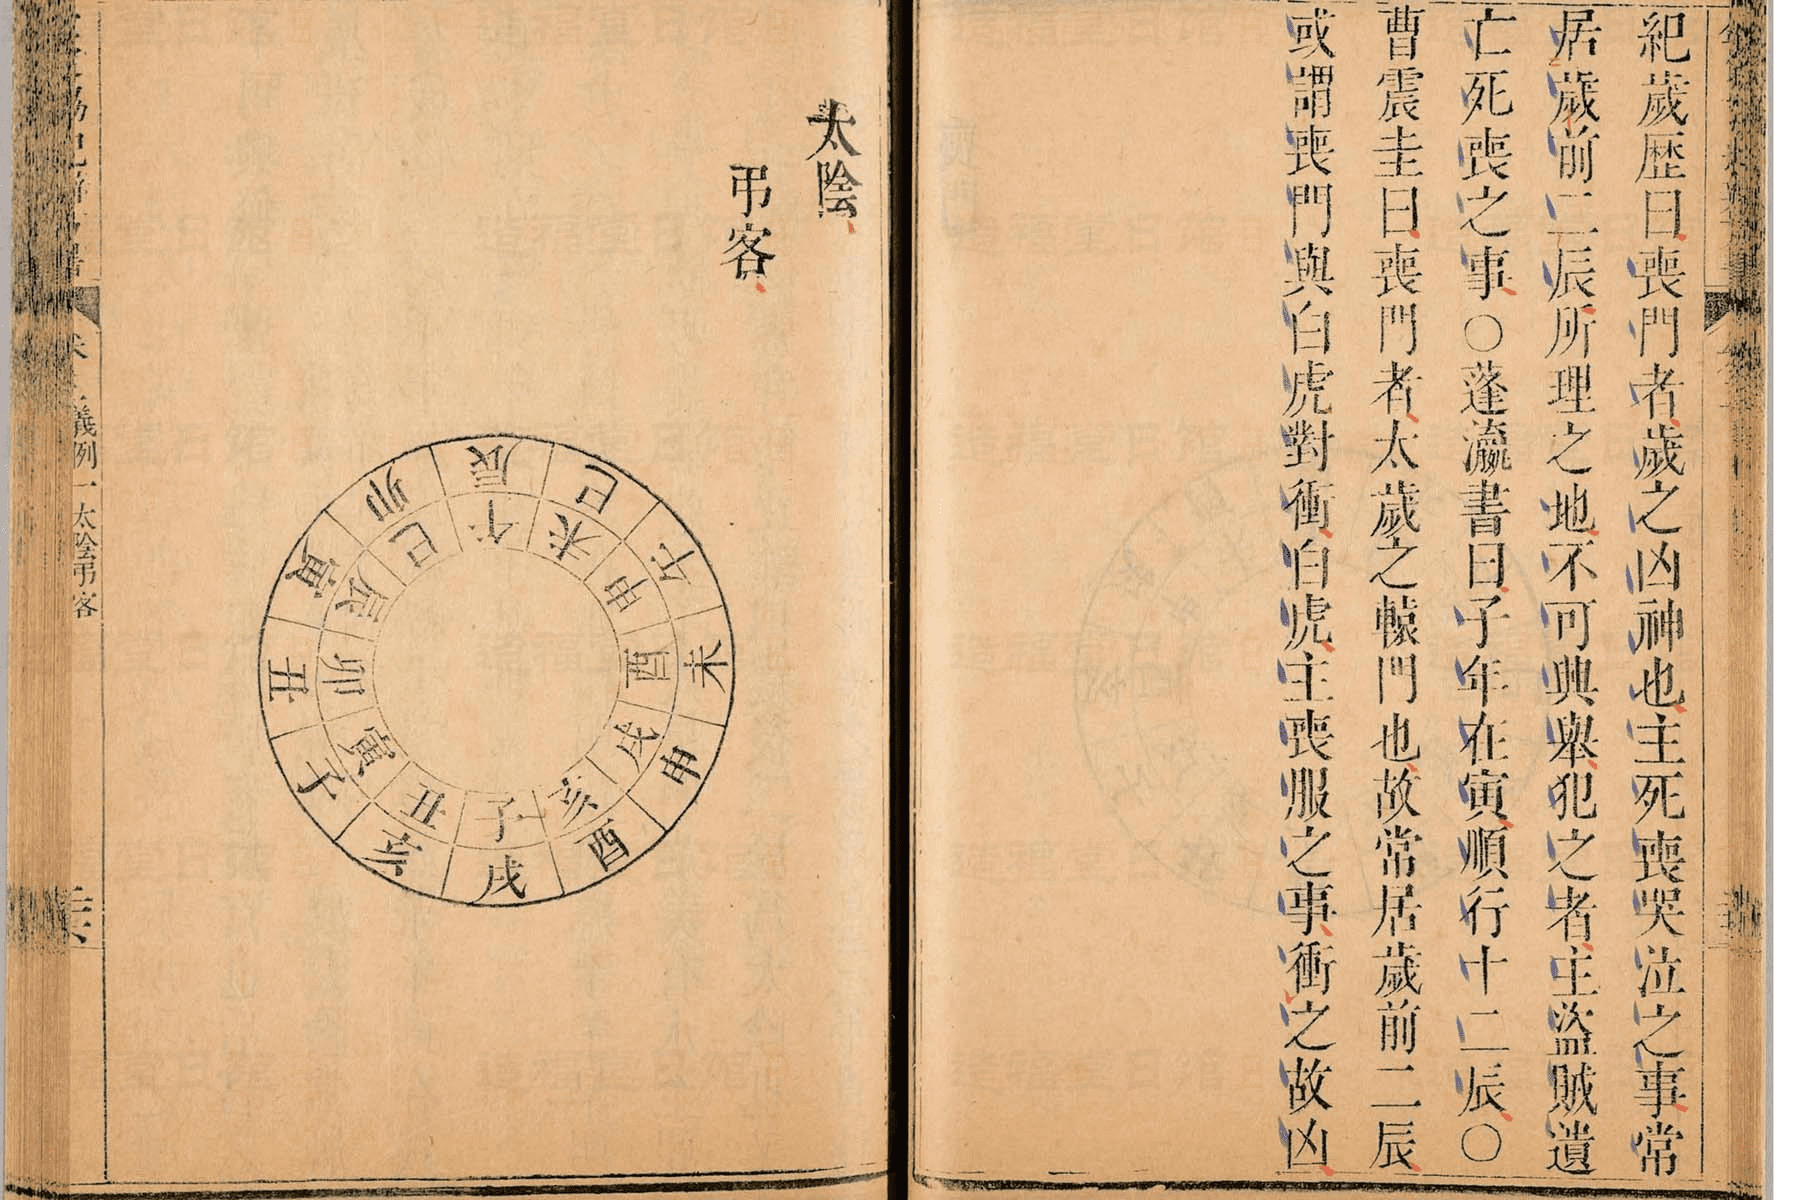 紀歲歴曰喪門者歲之凶神也主死喪哭泣之事常
居歲前二辰所理之地不可興舉犯之者主盜賊遺
亡死喪之事〇蓬瀛書曰子年在寅順行十二辰〇
曹震圭曰喪門者太歲之轅門也故常居歲前二辰
或謂喪門與白虎對衝白虎主喪服之事衝之故凶
太陰
弔客
戌亥子丑寅卯辰巳午未申酉
子丑寅卯辰巳午未申酉戌亥
義例一太陰弔客